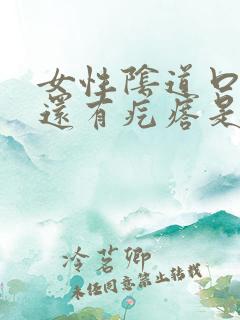 女性陰道口
還有疙瘩是
冷茗卿
未经同意禁止转载